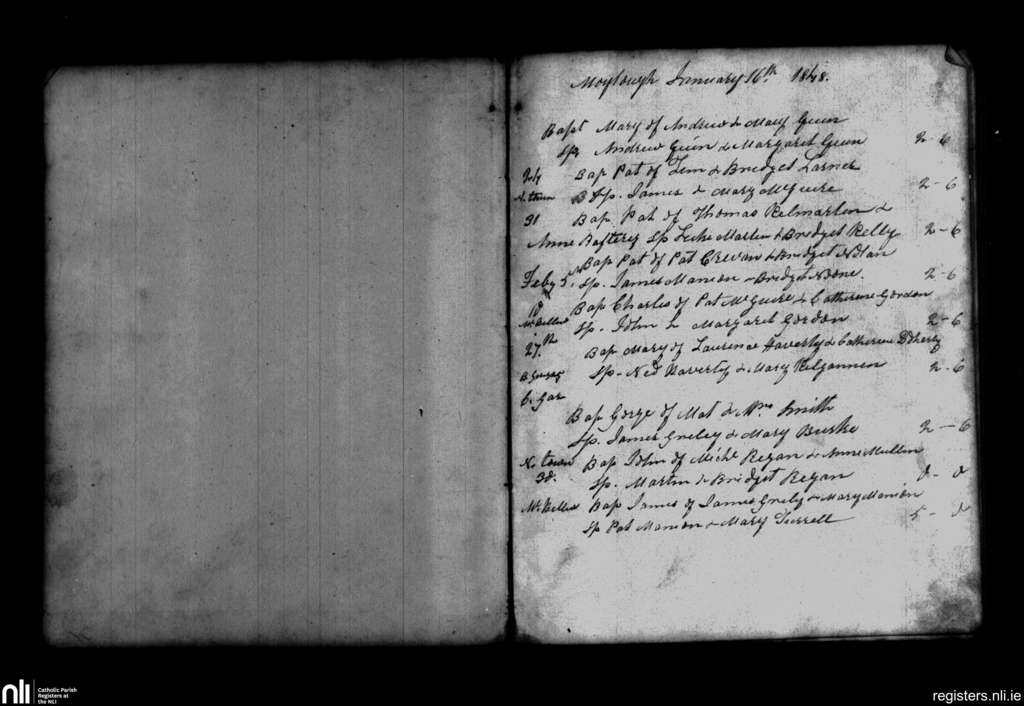 Moylough January 16th 1848.
Bapt Mary of Andrew & Mary Green
Sp Andrew Green & Margaret Green 2-6
Bap Pat of Tim & Bridget Larner
N. town B Sp. James & Mary McGuire 2-6
31 Bap Pat of Thomas Kelmartin &
Anne Raftery Sp Luke Martin & Bridget Kelly 2-6
Bap Pat of Pat Crevan & Bridget Nolan
Feby 5 Sp. James Manion & Bridget Noone. 2-6
10 Bap Charles of Pat McGuire & Catherine Gordon
Sp. John & Margaret Gordon 2-6
27th Bap Mary of Laurence Haverty & Catherine Doherty
Sp- Ned Haverty & Mary Kilgannon 2-6
Bap Gorge of Mat & Mrs Smith
Sp. James Grely & Mary Burke 2-6
N. town Bap John of Michl Regan & Anne Mullin
30. Sp. Martin & Bridget Regan 0-0
Bap James of James Grely & Mary Manion
Sp Pat Manion & Mary Turrell 5-0
nli
Catholic Parish
Registers at
the NLI
registers.nli.ie